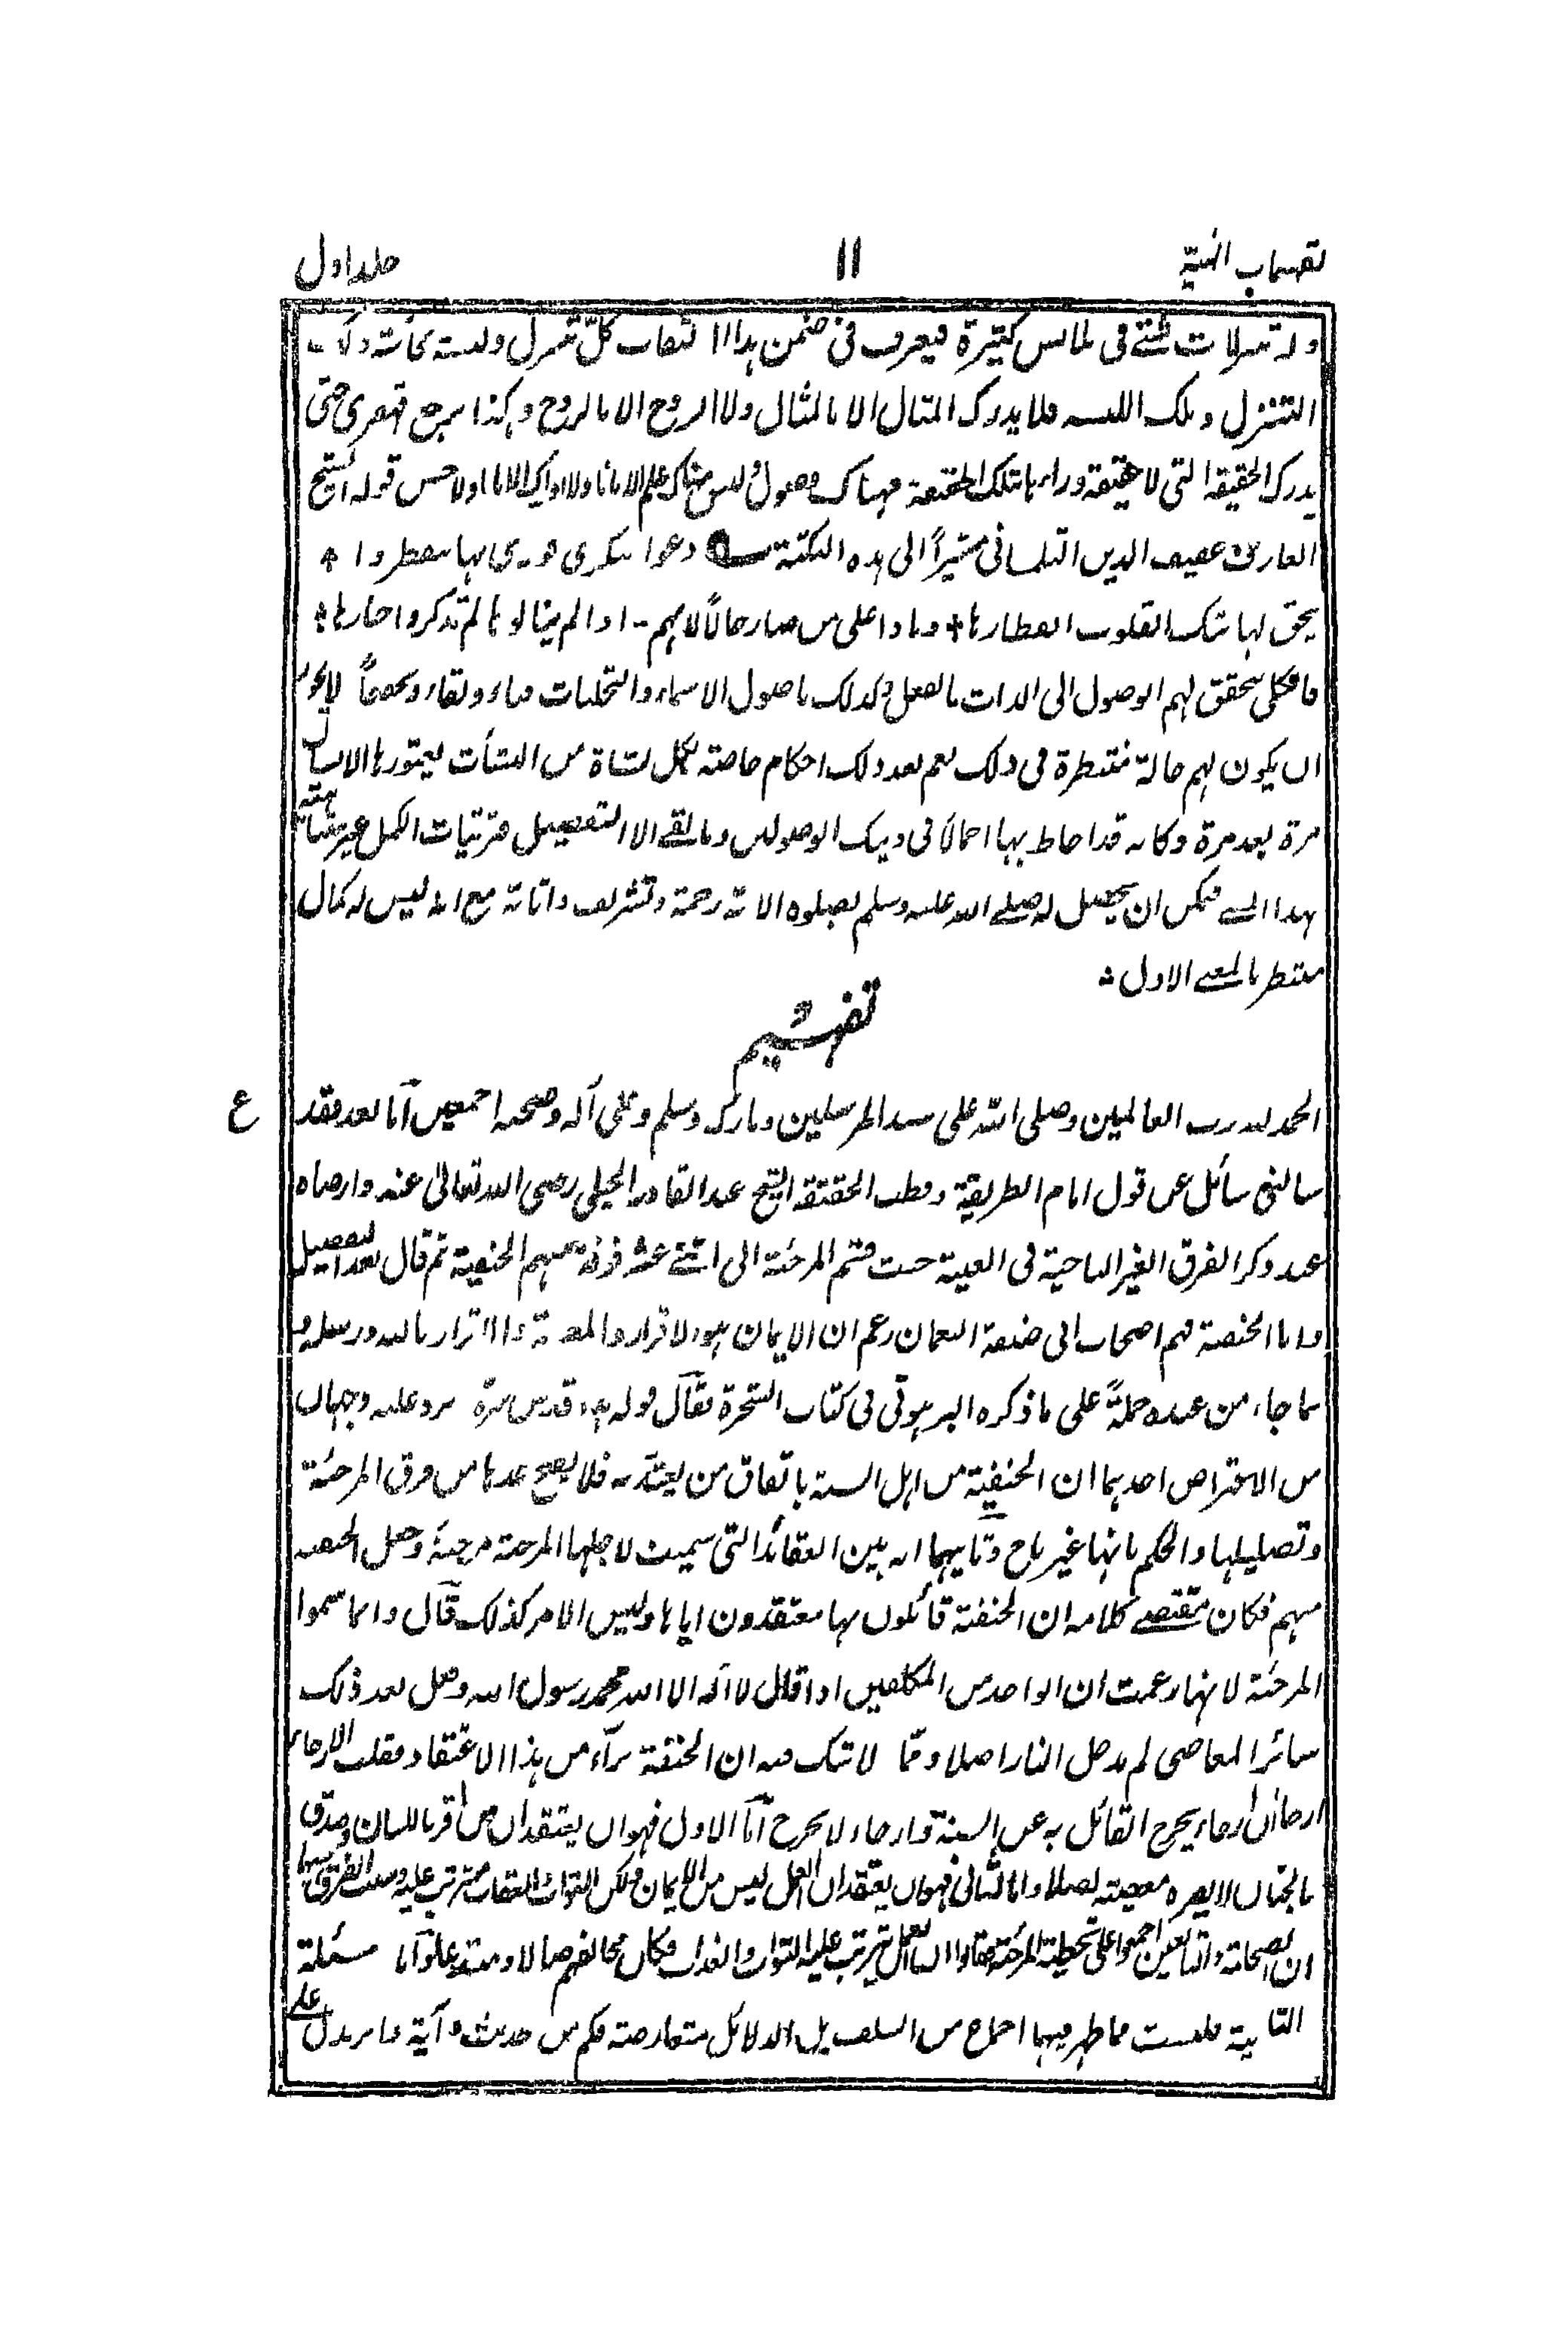 تفهيمات الٰهيّة ١١ جلد اول
وله تنزلات شتے فی ملابس كثيرة فيعرف فی ضمن هذا كلّ تنزل
التنزل وتلك اللبسه فلا يدرك المثال الا بالمثال ولا الروح الا بالروح وهكذا يرجع قهقری حتی
يدرك الحقيقة التی لا حقيقة وراءها بتلك الحقيقة فهناك وصول وليس هناك علم الا بانا ولا ادراك الا انا اولا حسن قوله الشيخ
العارف عفيف الدين التلمسانی مشيراً الی هذه النكتة دعوا بها
يحق لها تلك القلوب انفطارها وماذا علی من صار خالاً لا اذا لم ينالوها
فالكل يتحقق لهم الوصول الی الذات بالفعل وكذلك باصول الاسماء والتجليات فناء وبقاء وتحققاً لا يجوز
ان يكون لهم حالة منتظرة فی ذلك نعم بعد ذلك احكام خاصة لكل نشاة من النشأت يعتورها الانسان
مرة بعد مرة وكانه قد احاط بها اجمالا فی ذينك الوصولين وما بقے الا التفصيل فترتيبات الكمل غير متناهية
بهذا المعنے فيمكن ان يحصل له صلے الله عليه وسلم بصلوة الامة رحمة وتشريف واثابة مع انه ليس له كمال
منتظر بالمعنے الاول
تفهيم
الحمد لله رب العالمين وصلی الله علی سيد المرسلين وبارك وسلم وعلی آله وصحبه اجمعين أما بعد فقد ع
سالنی سائل عن قول امام الطريقة وقطب الحقيقة الشيخ عبد القادر الجيلی رضی الله تعالی عنه وارضاه
عند ذكر الفرق الغير الناجية فی الغنية حيث قسم المرجئة الی اثنے عشر فرقة منهم الحنفية ثم قال بعد التفصيل
واما الحنفية فهم اصحاب ابی حنيفة النعمان زعم ان الايمان هو الاقرار والمعرفة والاقرار بالله ورسله و
بما جاء من عنده جملةً علی ما ذكره البرهوتی فی كتاب الشجرة فقال قوله هذا قدس سرّه يرد عليه وجهان
من الاعتراض احدهما ان الحنفية من اهل السنة باتفاق من يعتد به فلا يصح عدها من فرق المرجئة
وتضليلها والحكم بانها غير ناج وثانيهما انه بين العقائد التی سميت لاجلها المرجئة مرجئة وجعل الحنفية
منهم فكان مقتضے كلامه ان الحنفية قائلون بها معتقدون اياها وليس الامر كذلك قال وانما سموا
المرجئة لانها زعمت ان الواحد من المكلفين اذا قال لا اله الا الله محمد رسول الله وفعل بعد ذلك
سائر المعاصی لم يدخل النار اصلا ومما لا شك فيه ان الحنفية برآء من هذا الاعتقاد فقلت الارجاء
ارجاآن ارجاء يخرج القائل به عن السنة وارجاء لا يخرج أما الاول فهو ان يعتقد ان من اقر باللسان وصدق
بالجنان لا يضره معصيته اصلا واما الثانی فهو ان يعتقد ان العمل ليس من الايمان ولكن الثواب والعقاب مترتب عليه وسبب الفرق بينهما
ان الصحابة والتابعين اجمعوا علی تخطية المرجئة فقالوا ان العمل يترتب عليه الثواب والعذاب فكان مخالفهم ضالا ومبتدعا وأما مسئلة
الثانية فليست مما ظهر فيها اجماع من السلف بل الدلائل متعارضة فكم من حديث وآية واثر يدل علے